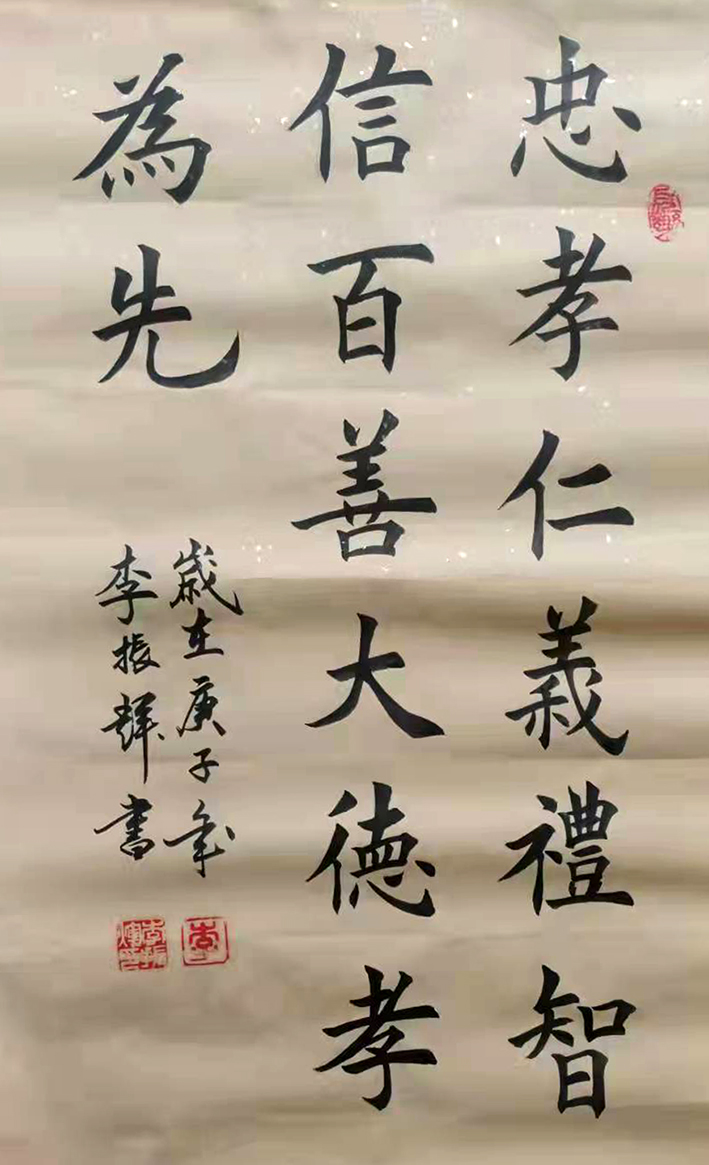 忠孝仁義禮智
信百善大德孝
為先
歲在庚子年
李振輝書